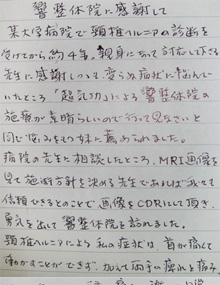 響整体院に感謝して
某大学病院で頸椎ヘルニアの診断を
受けてから約4年。親身になって対応して下さる
先生に感謝しつつも変らぬ症状に悩んで
いたところ「超気功」による響整体院の
施療が素晴らしいので行って見なさいと
同じ悩みをもつ妹に薦められました。
病院の先生に相談したところ、MRI画像を
見て施術方針を決める先生であれば
信頼できるとのことで画像をCDRにして頂き、
勇気を出して響整体院を訪れました。
頸椎ヘルニアによる私の症状は、首が痛くて
動かすことができず、加えて両手に痺れと痛み